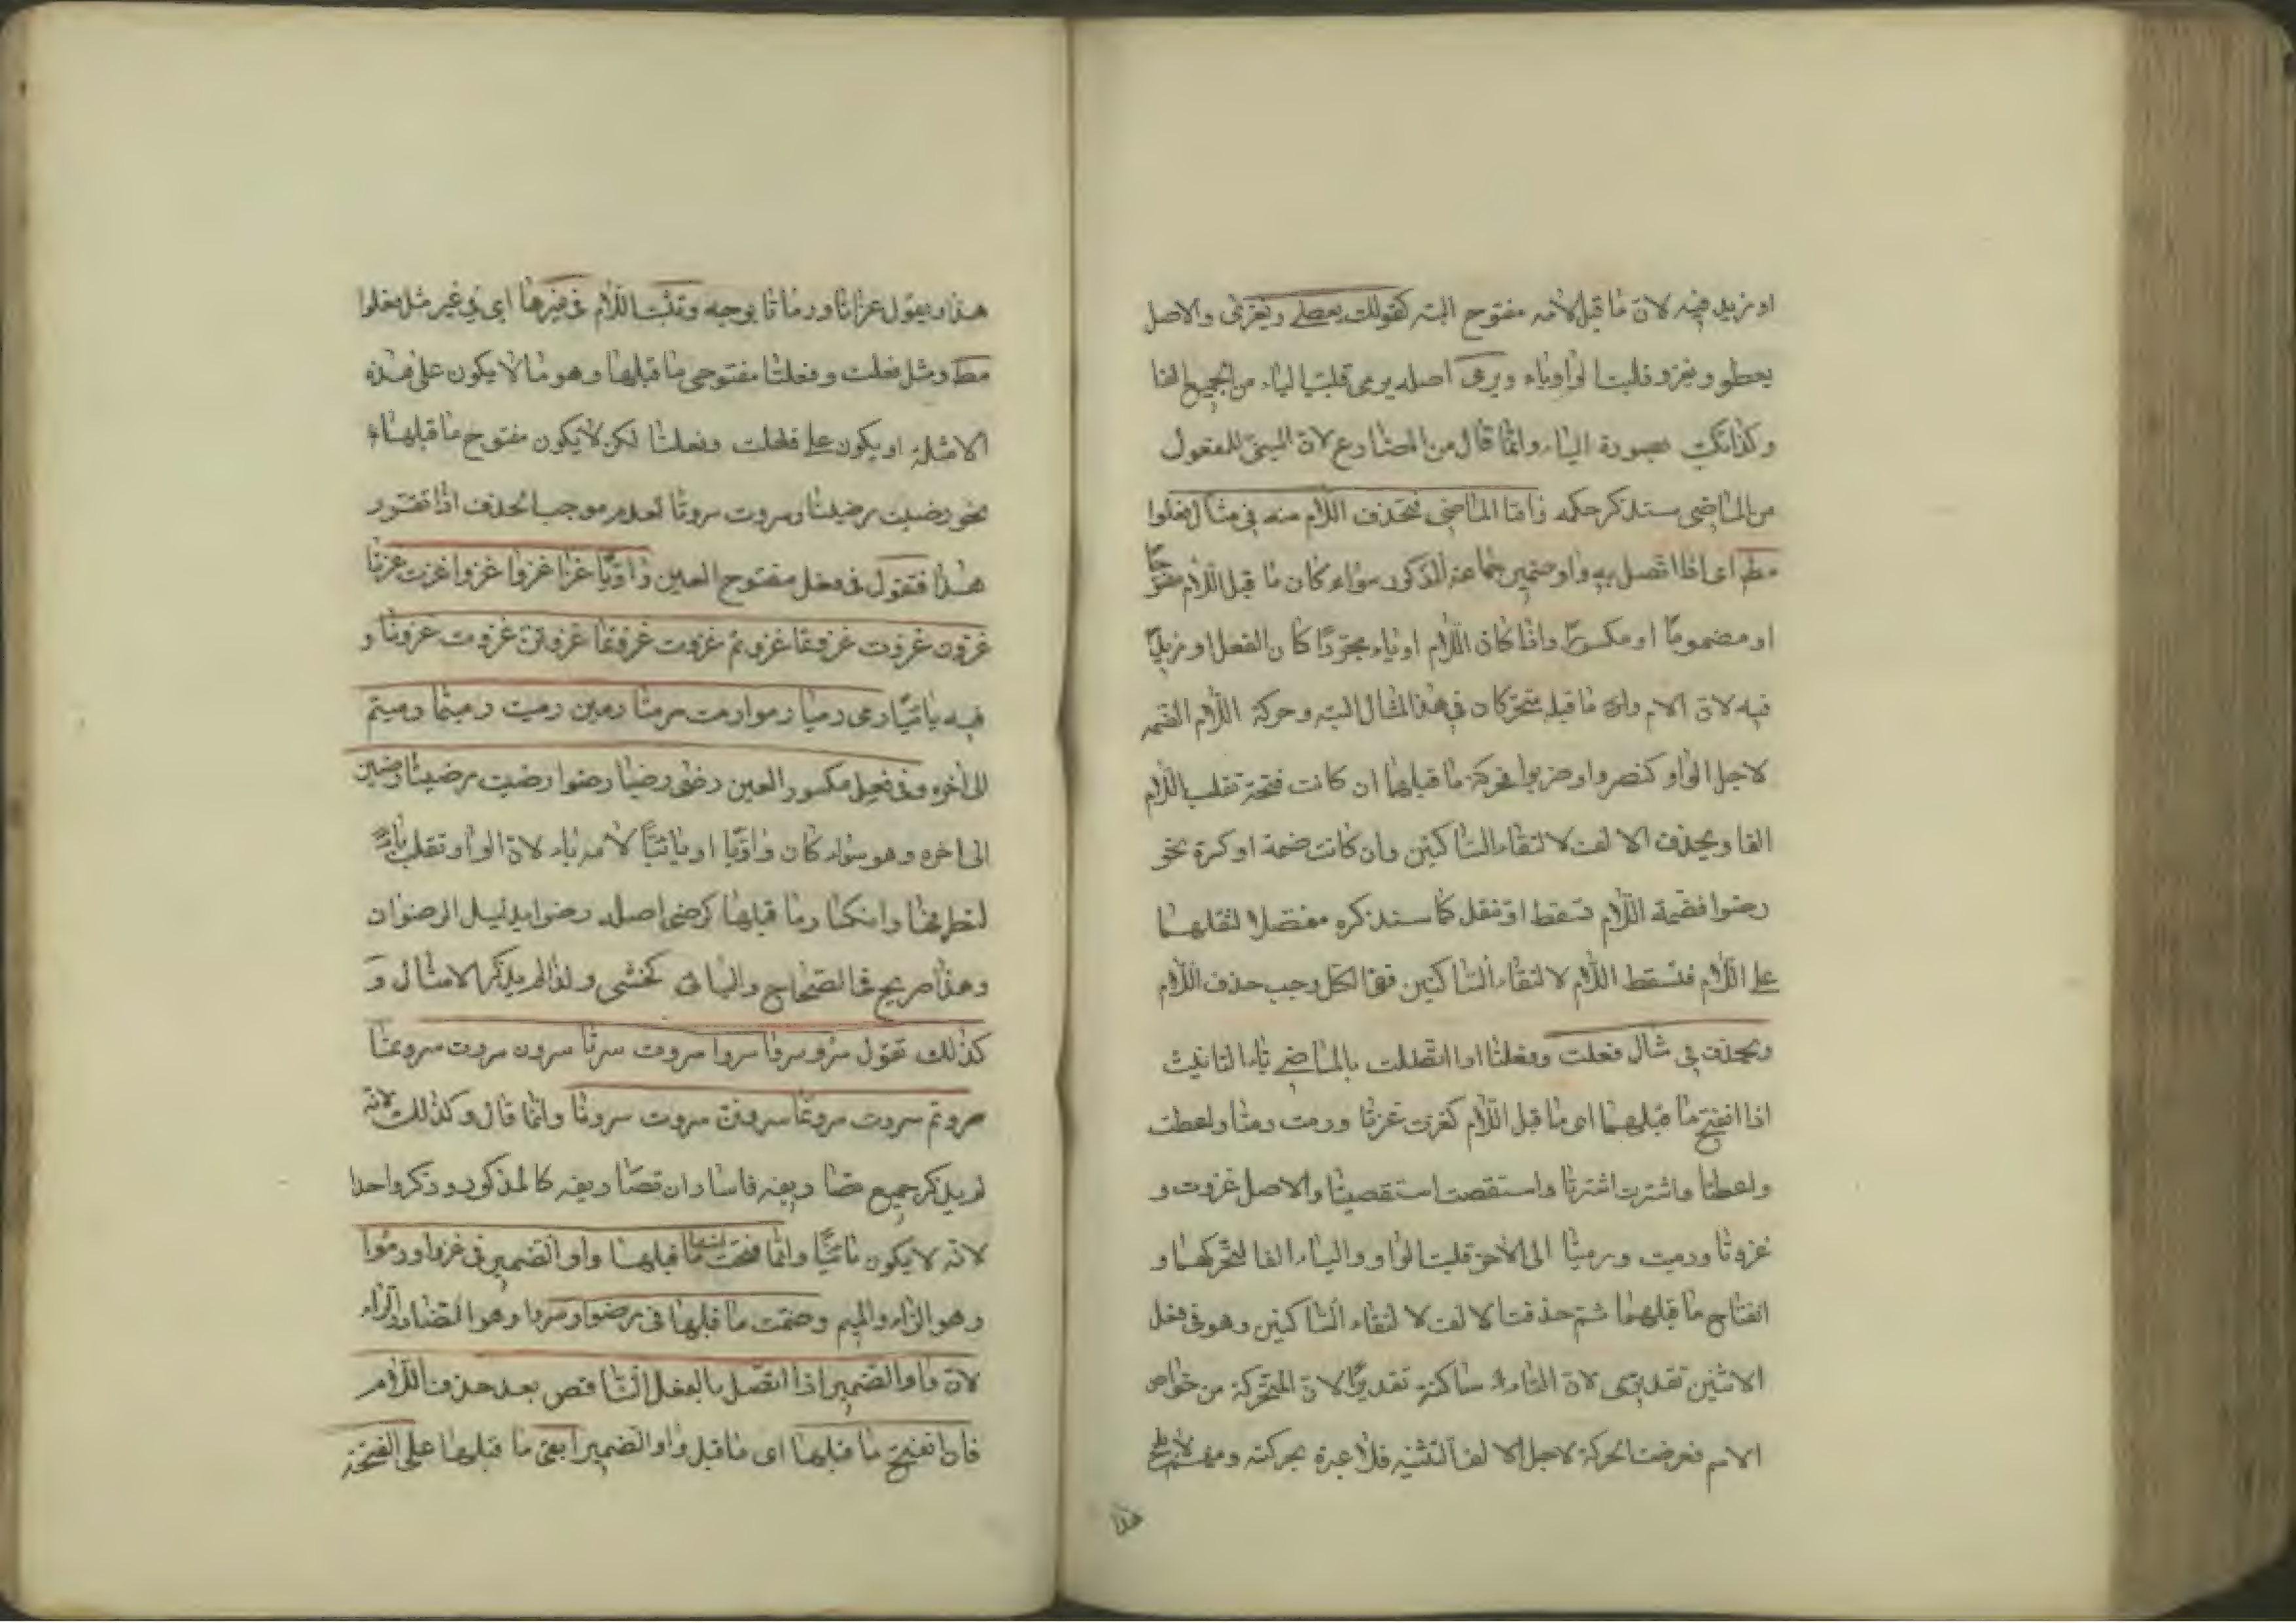 او مزيد فيه لان ما قبل لامه مفتوح البته كقولك يعطى ويغزى والاصل
يعطو ويغزو قلبت الواو ياء ويرمى اصله يرمى قلبت الياء من الجميع الفا
وكذا تكتب بصورة الياء وانما قال من المضارع لان المبنى للمفعول
من الماضى ستذكر حكمه واما الماضى فتحذف اللام منه فى مثال فعلوا
مط اى اذا اتصل به واو ضمير جماعة الذكور سواء كان ما قبل اللام مفتوحا
او مضموما او مكسورا واذا كان اللام او ياء مجردا كان الفعل او مزيدا
فيه لان الام وان ما قبله متحركان فى هذا المثال البته وحركة اللام الضمه
لاجل الواو كنصروا وضربوا فحركة ما قبلها ان كانت فتحة تقلب اللام
الفا ويحذف الالف لالتقاء الساكنين وان كانت ضمة او كسرة نحو
رضوا فضمة اللام تسقط او تنقل كما سنذكره مفصلا لثقلهما
على اللام فتسقط اللام لالتقاء الساكنين ففى الكل وجب حذف اللام
ويحذف فى مثال فعلت وفعلتا اوا اتصلت بالماضى تاء التانيث
اذا انفتح ما قبلهما اى ما قبل اللام كغزت غزتا ورمت رمتا واعطت
واعطتا واشترت اشترتا واستقصت استقصيتا والاصل غزوت و
غزوتا ورميت ورميتا الى الاخر قلبت الواو والياء الفا لتحركهما و
انفتاح ما قبلهما ثم حذفت الالف لالتقاء الساكنين وهو فى فعل
الاثنين تقديرى لان التاء ساكنة تقديرا لان المتحركة من خواص
الاسم فعرضت الحركة لاجل الالف التثنيه فلا عبرة بحركته ومنهم
هذا
هذا ويقول غزاتا ورماتا بوجه وتثبت اللام فى غيرها اى فى غير مثل فعلوا
مط ومثل فعلت وفعلتا مفتوحى ما قبلها وهو ما لا يكون على هذه
الامثلة او يكون على فعلت وفعلتا لكن لا يكون مفتوح ما قبلها
نحو رضيت رضيتا وسروت سروتا لعدم موجب الحذف اذا تقرر
هذا فتقول فى فعل مفتوح العين واويا غزا غزوا غزوا غزت غزتا
غزون غزوت غزوتما غزوتم غزوت غزوتما غزوتن غزوت غزونا و
فيه يائيا رمى رميا رموا رمت رمتا رمين رميت رميتما رميتم
الى اخره وفى فعل مكسور العين رضى رضيا رضوا رضيت رضيتا رضين
الى اخره وهو سواء كان واويا او يائيا لامه ياء لان الواو تقلب ياء
لتطرفها وانكسار ما قبلها كرضى اصله رضو بدليل الرضوان
وهذا صريح فى الصحاح واليائى كخشى ولذا لم يذكر الامثال و
كذلك تقول سرو سروا سروا سروت سرتا سرون سروت سروتما
سروتم سروت سروتما سروتن سروت سرونا وانما قال وكذلك لانه
لم يذكر جميع
لانه لا يكون يائيا وانما فتحت انت ما قبلها واو الضمير فى غزوا ورموا
وهو الزاء والميم وضمت ما قبلها فى رضوا وسروا وهو الضاد والراء
لان واو الضمير اذا اتصل بالفعل الناقص بعد حذف اللام
فان انفتح ما قبلها اى ما قبل واو الضمير ابقى ما قبلها على الفتحة